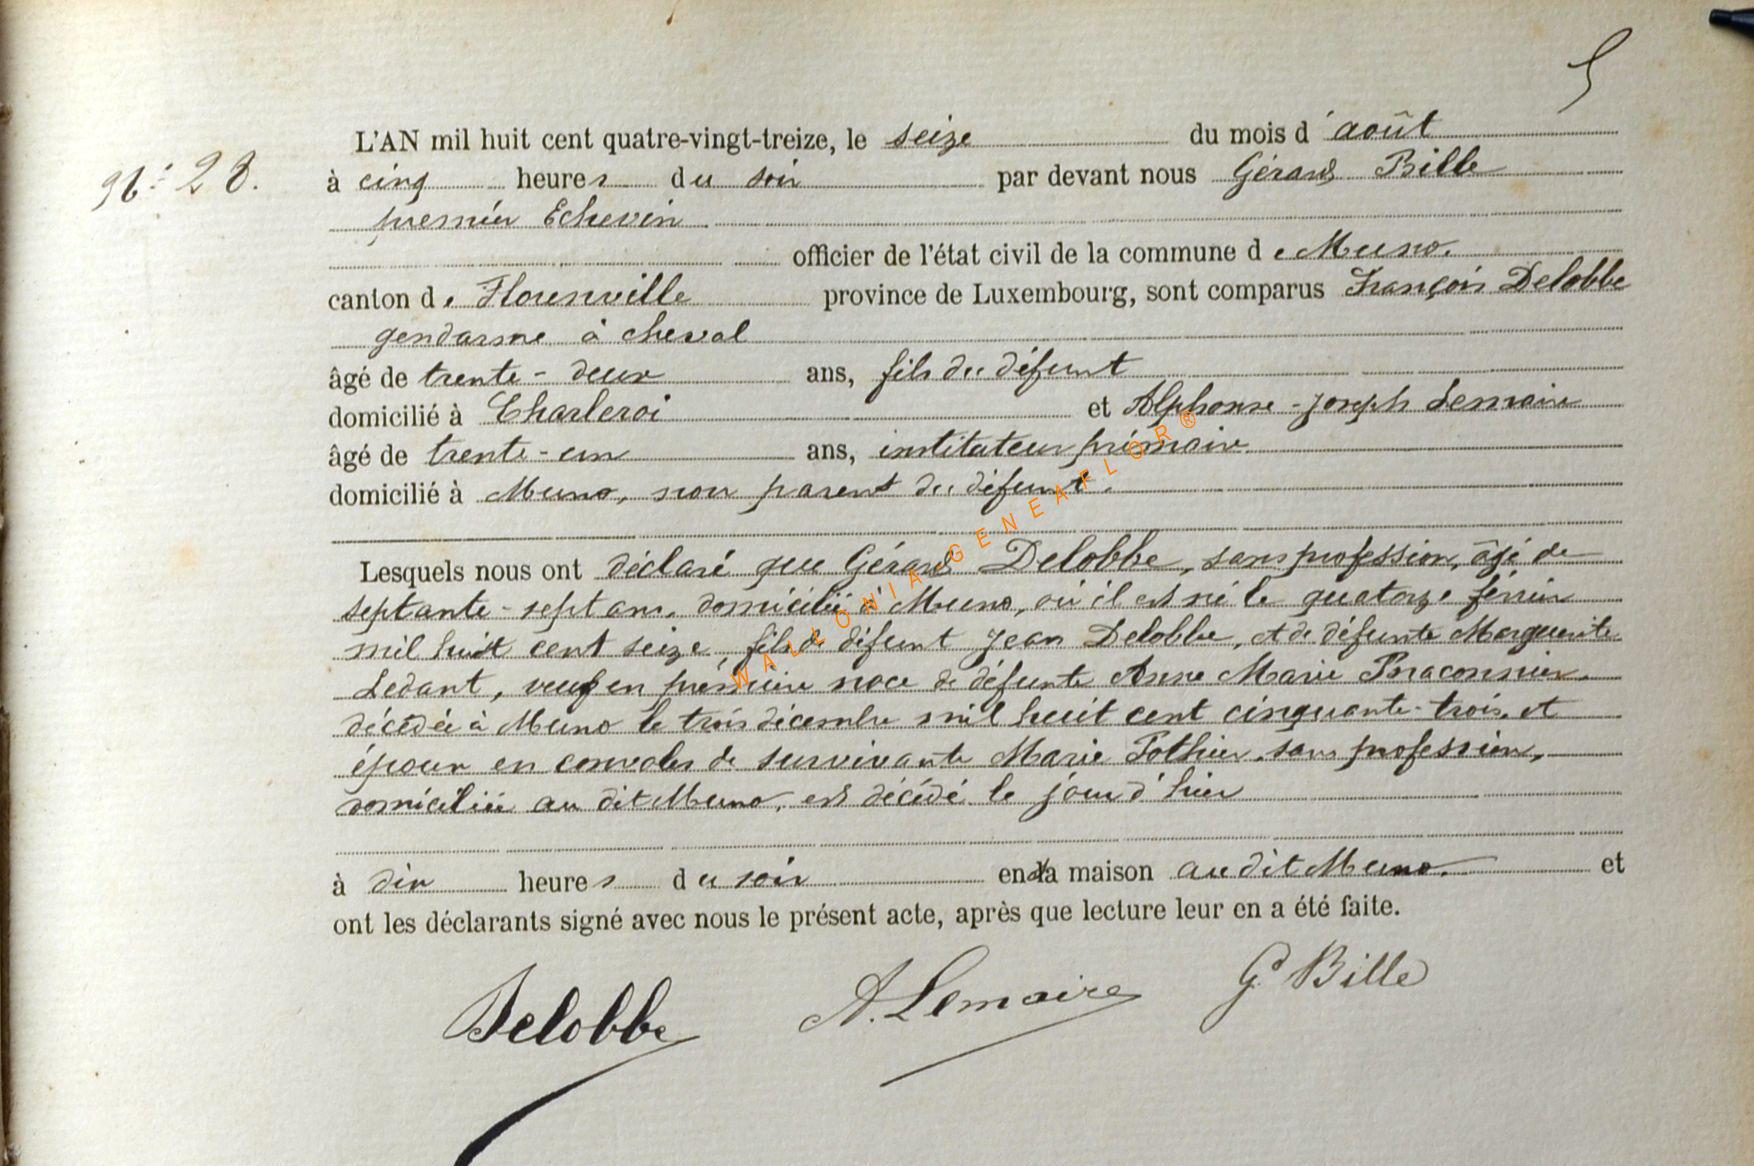 5
L'AN mil huit cent quatre-vingt-treize, le seize du mois d'août
N° 28.
à cinq heures du soir par devant nous Gérard Bille
premier Echevin
officier de l'état civil de la commune de Muno.
canton de Florenville province de Luxembourg, sont comparus François Delobbe
gendarme à cheval
âgé de trente-deux ans, fils du défunt
domicilié à Charleroi et Alphonse-Joseph Lemaire
âgé de trente-un ans, instituteur primaire
domicilié à Muno, non parent du défunt.
Lesquels nous ont déclaré que Gérard Delobbe, sans profession, âgé de
septante-sept ans, domicilié à Muno, où il est né le quatorze février
mil huit cent seize, fils de défunt Jean Delobbe, et de défunte Marguerite
Ledant, veuf en première noce de défunte Anne Marie Braconnier.
décédée à Muno le trois décembre mil huit cent cinquante-trois, et
époux en convoler de survivante Marie Pothier, sans profession,
domiciliée au dit Muno, est décédé le jour d'hier
à dix heures du soir en la maison au dit Muno. et
ont les déclarants signé avec nous le présent acte, après que lecture leur en a été faite.
Delobbe A. Lemaire Gd Bille
WALLONIA GENEAFLOR®